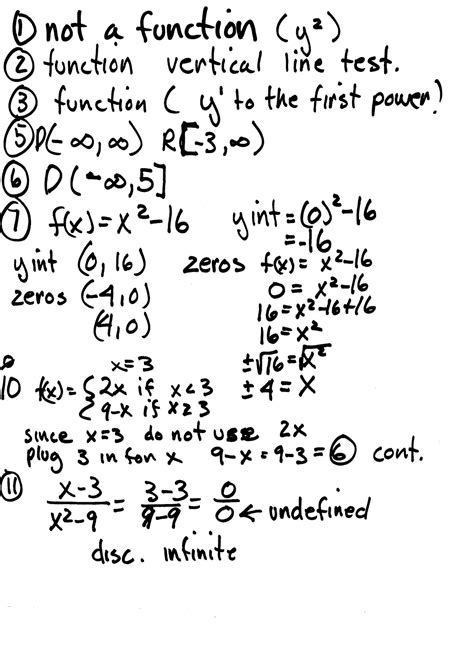 ① not a function (y²)
② function vertical line test.
③ function ( y¹ to the first power)
⑤ D(-∞,∞) R[-3,∞)
⑥ D(-∞,5]
⑦ f(x)=x²-16 y int = (0)²-16
=-16
y int (0,16) zeros f(x)= x²-16
zeros (-4,0) 0 = x²-16
(4,0) 16=x²-16+16
16=x²
x=3 ±√16=√x²
10 f(x)= { 2x if x<3 ±4=x
{ 9-x if x≥3
since x=3 do not use 2x
plug 3 in for x 9-x=9-3=⑥ cont.
⑪ x-3/x²-9 = 3-3/9-9 = 0/0 ← undefined
disc. infinite